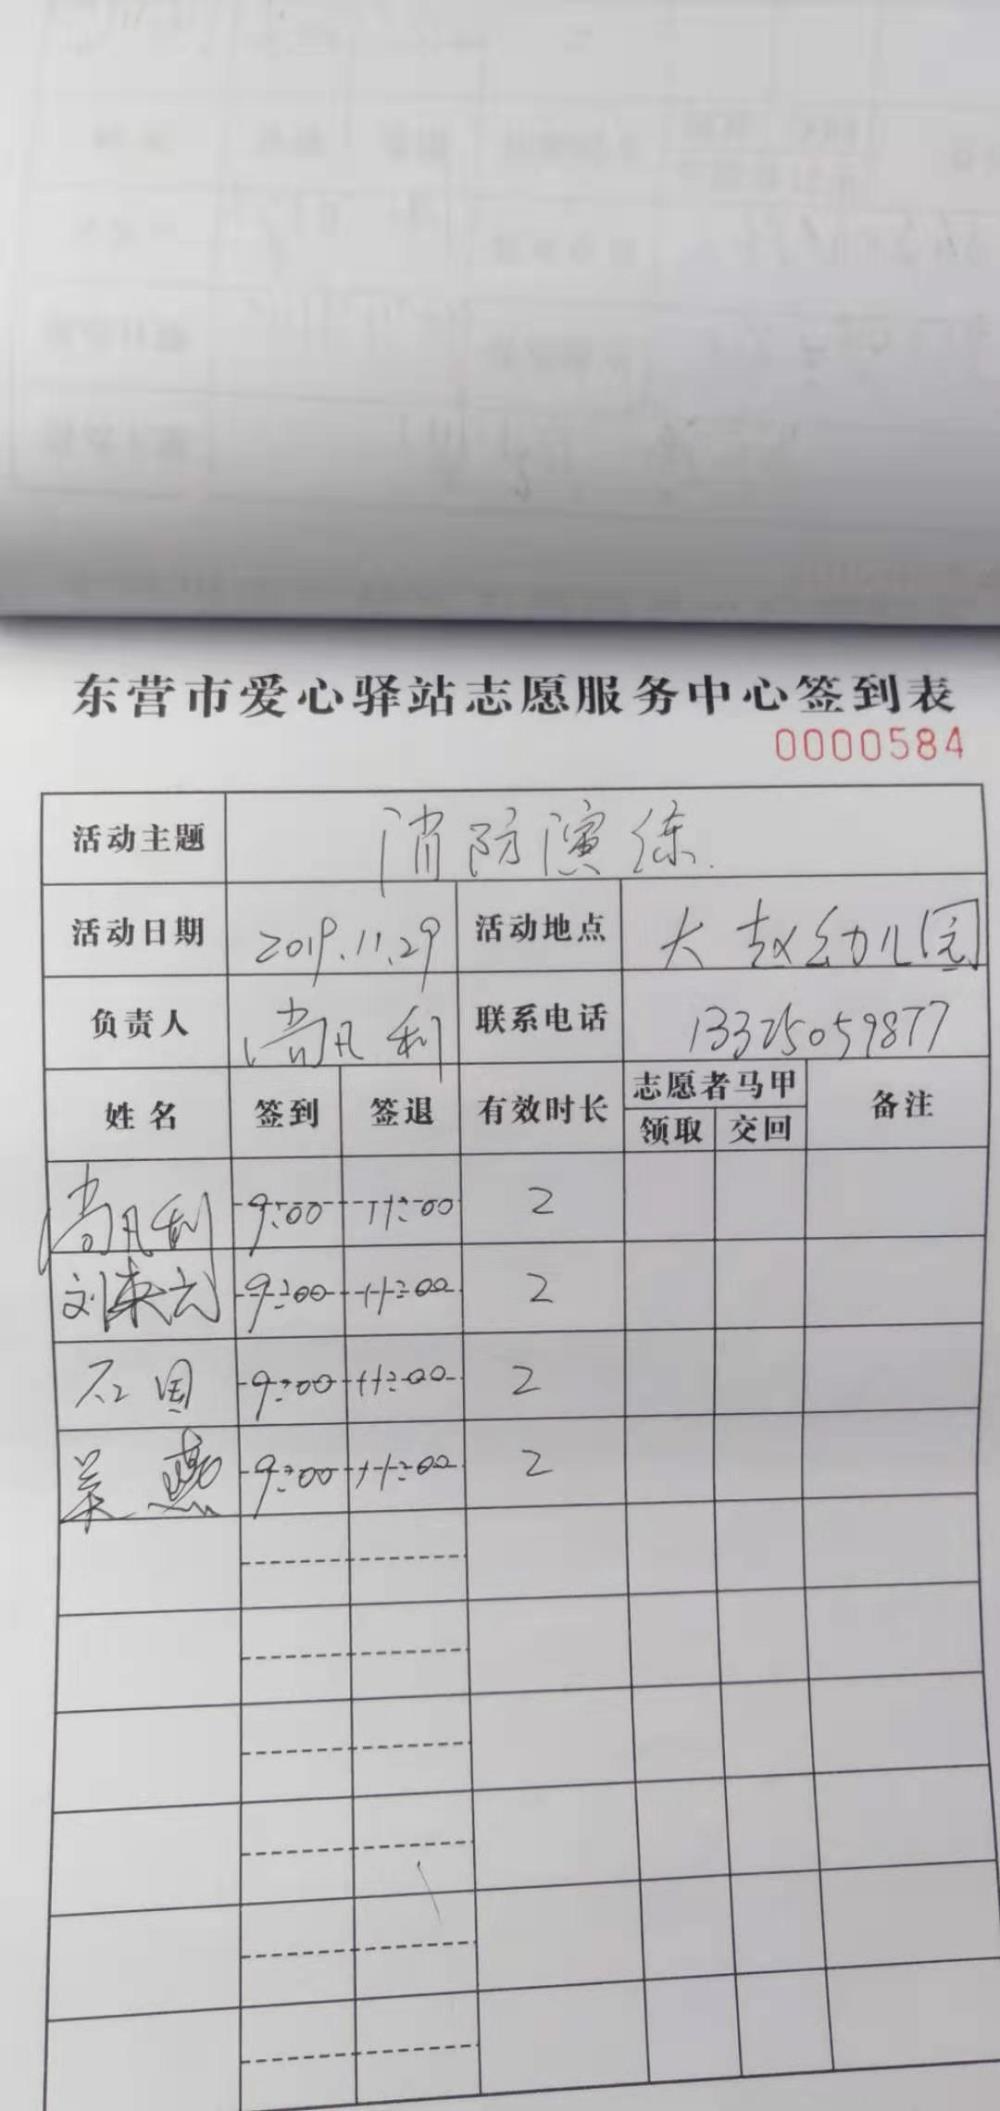 东营市爱心驿站志愿服务中心签到表
0000584
活动主题 消防演练
活动日期 2019.11.29 活动地点 大赵幼儿园
负责人 尚凡利 联系电话 13325059877
姓名 签到 签退 有效时长 志愿者马甲 备注
领取 交回
尚凡利 9:00 11:00 2
刘英云 9:00 11:00 2
石国 9:00 11:00 2
吴燕 9:00 11:00 2